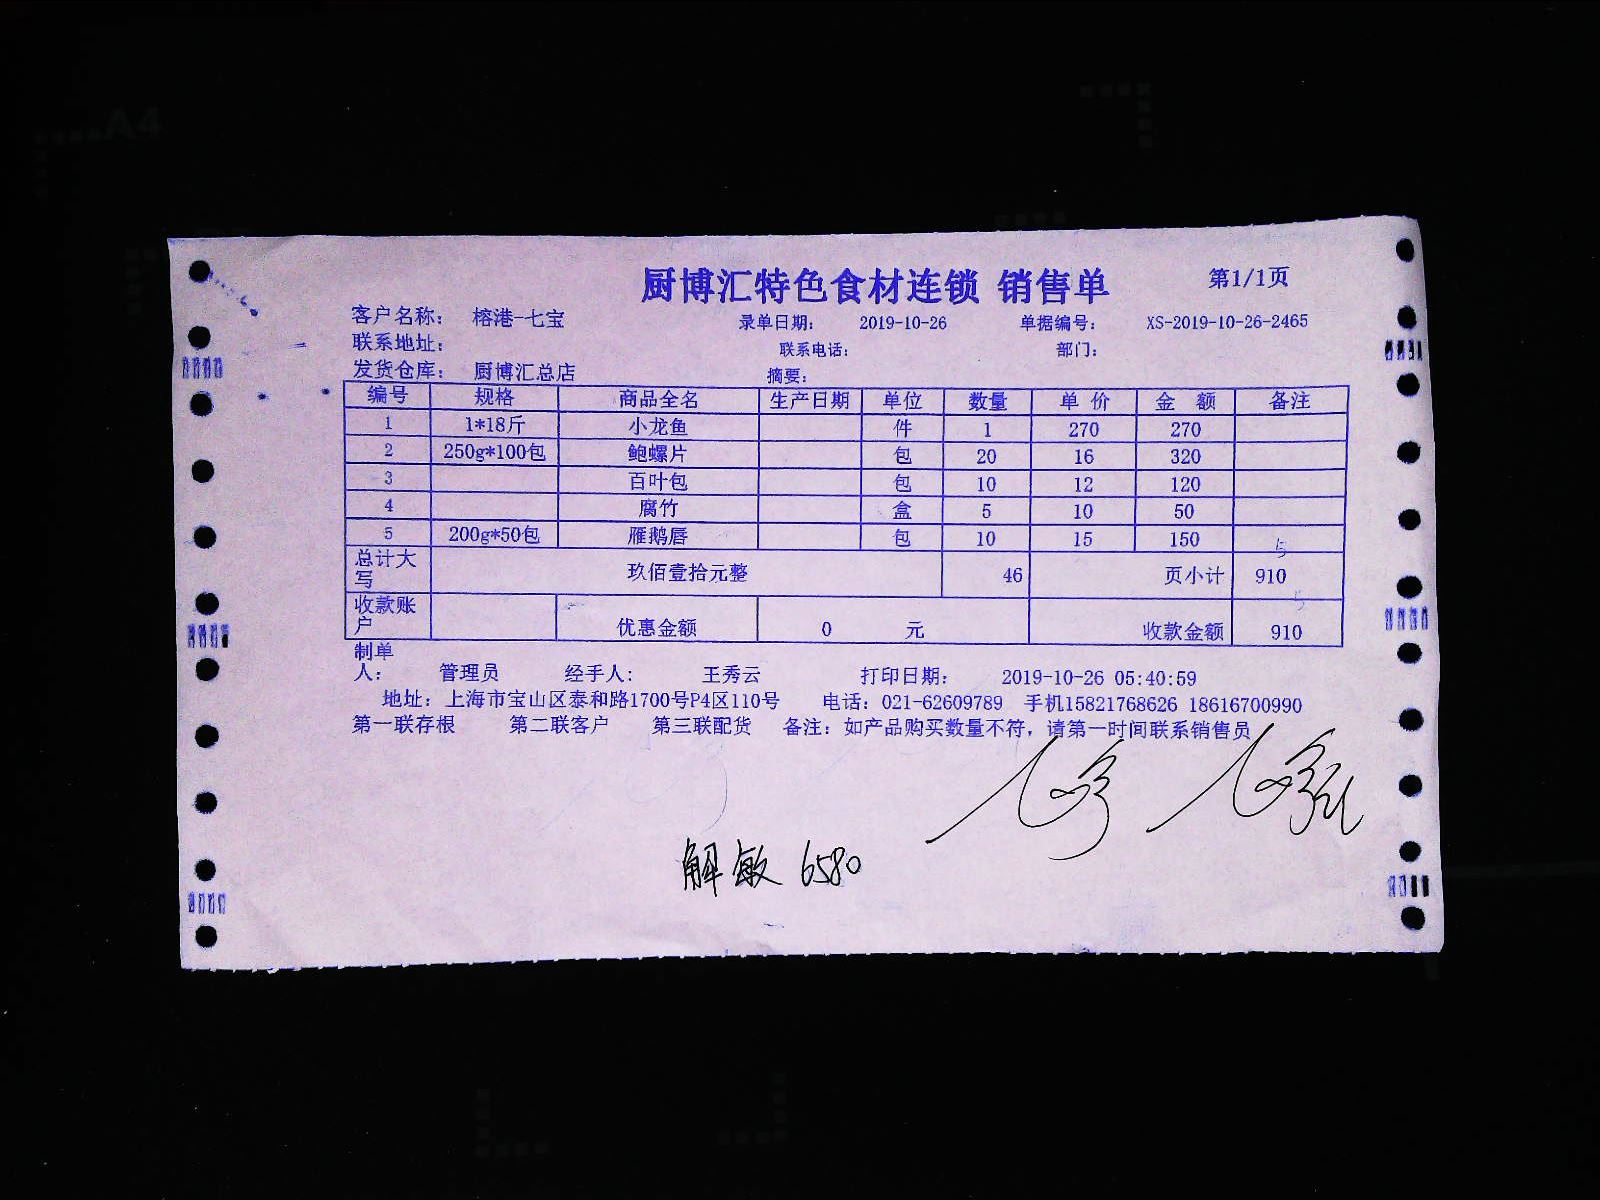 A4
厨博汇特色食材连锁 销售单 第1/1页
客户名称： 榕港-七宝 录单日期： 2019-10-26 单据编号： XS-2019-10-26-2465
联系地址： 联系电话： 部门：
发货仓库： 厨博汇总店 摘要：
编号 规格 商品全名 生产日期 单位 数量 单 价 金 额 备注
1 1*18斤 小龙鱼 件 1 270 270
2 250g*100包 鲍螺片 包 20 16 320
3 百叶包 包 10 12 120
4 腐竹 盒 5 10 50
5 200g*50包 雁鹅唇 包 10 15 150
总计大写 玖佰壹拾元整 46 页小计 910
收款账户 优惠金额 0 元 收款金额 910
制单人： 管理员 经手人： 王秀云 打印日期： 2019-10-26 05:40:59
地址：上海市宝山区泰和路1700号P4区110号 电话：021-62609789 手机15821768626 18616700990
第一联存根 第二联客户 第三联配货 备注：如产品购买数量不符，请第一时间联系销售员
解敏 6580